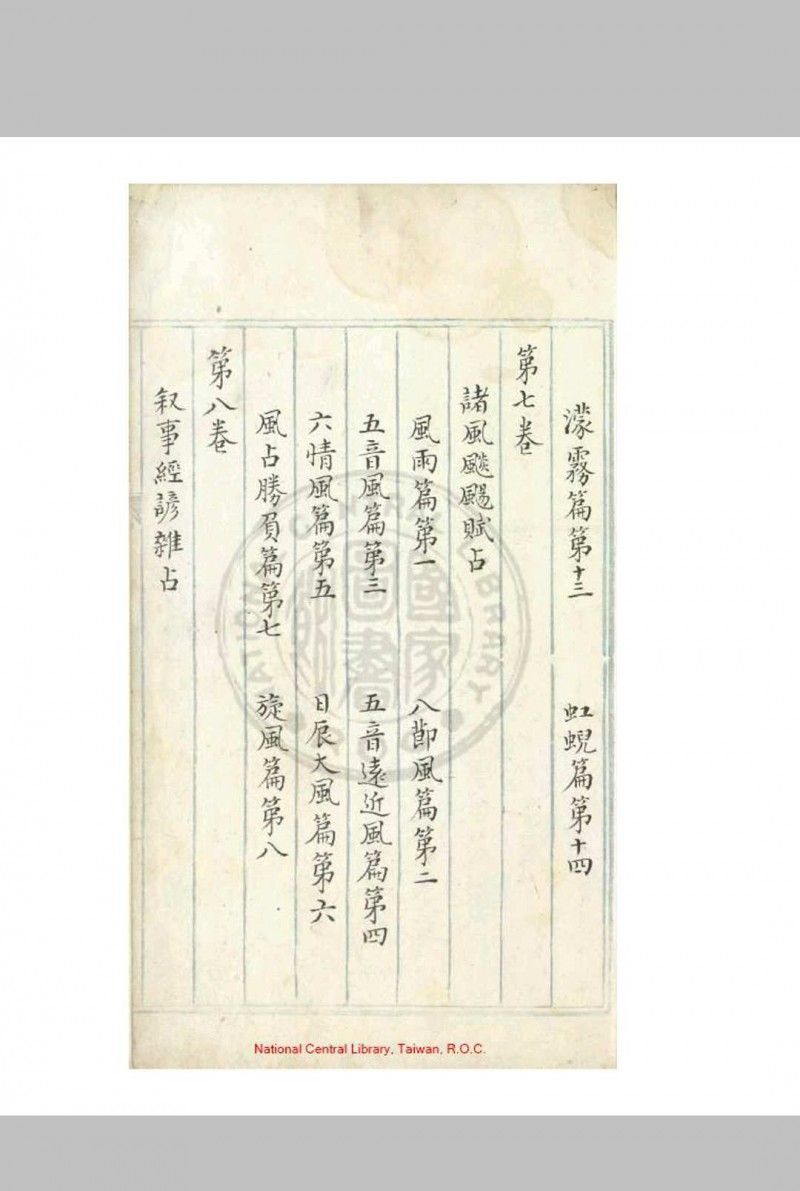 濛霧篇第十三　虹蜺篇第十四
第七卷
諸風颷颺賦占
風雨篇第一　八節風篇第二
五音風篇第三　五音遠近風篇第四
六情風篇第五　日辰大風篇第六
風占勝負篇第七　旋風篇第八
第八卷
叙事經諺雜占
國家圖書館
NATIONAL CENTRAL LIBRARY
R.O.C.
National Central Library, Taiwan, R.O.C.